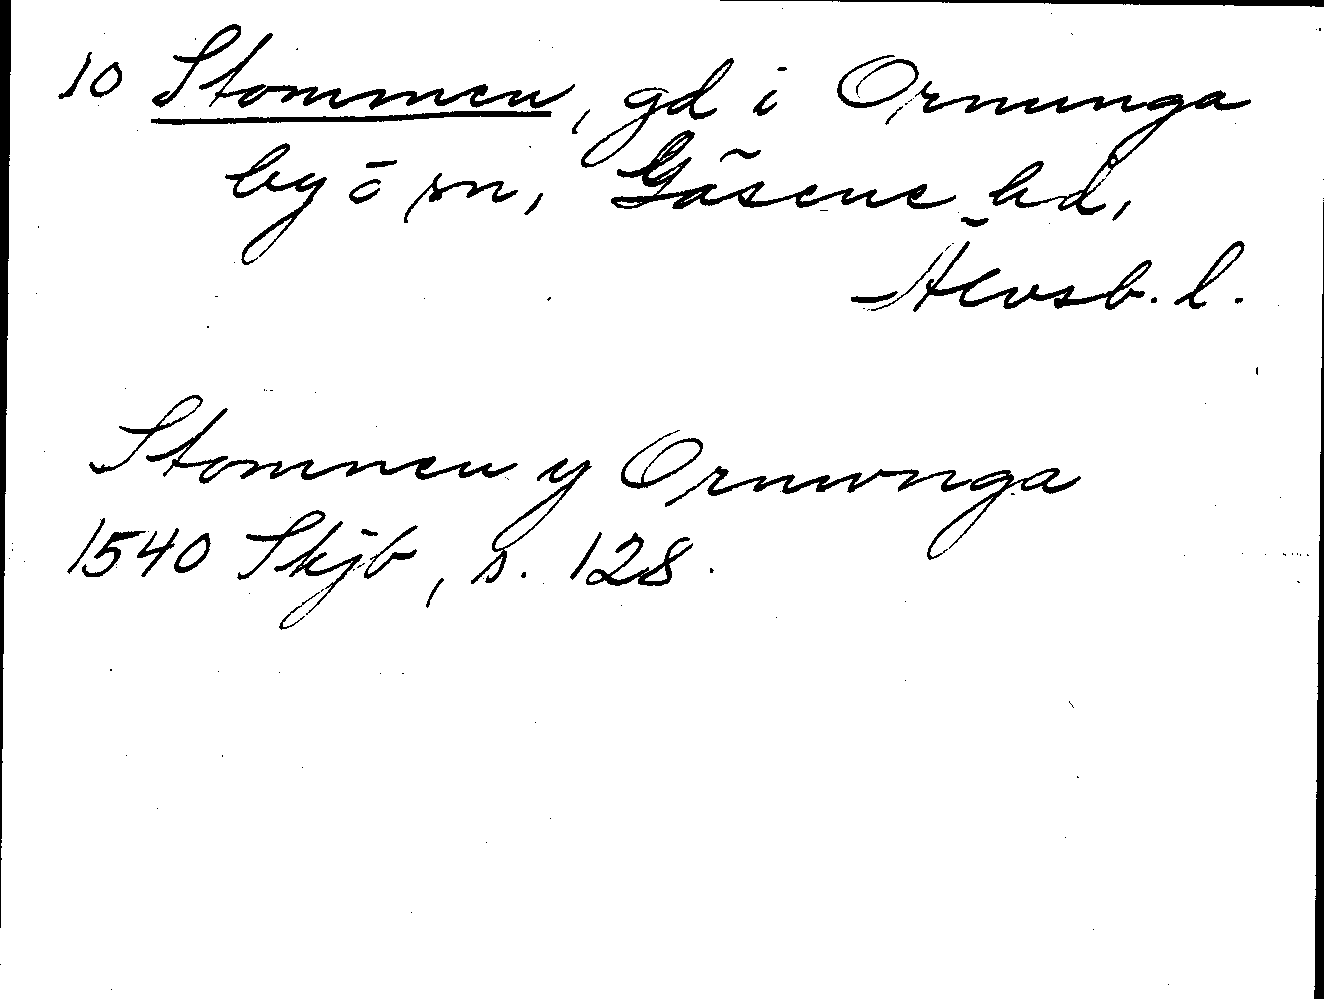 10 Stommen, gd i Ornunga
by o sn, Gäsene hd,
Älvsb. l.
Stomnen y Ornwnga
1540 Skjb, s. 128.